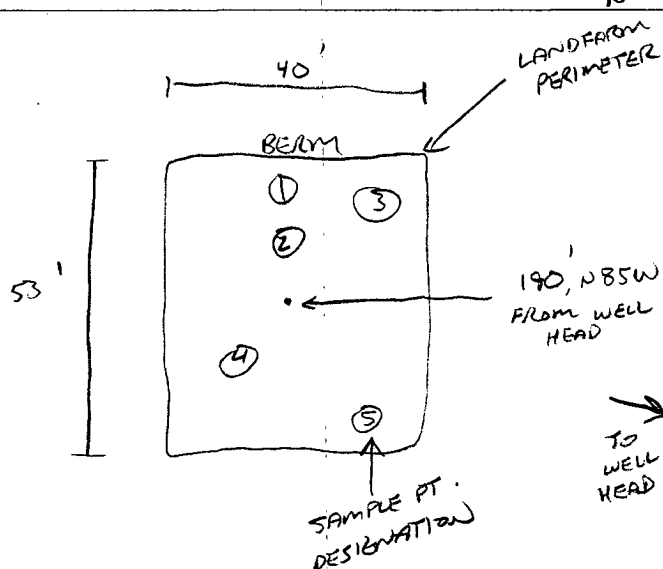 40'
LANDFARM
PERIMETER
BERM
1
3
2
53'
190', N85W
FROM WELL
HEAD
4
5
TO
WELL
HEAD
SAMPLE PT.
DESIGNATION